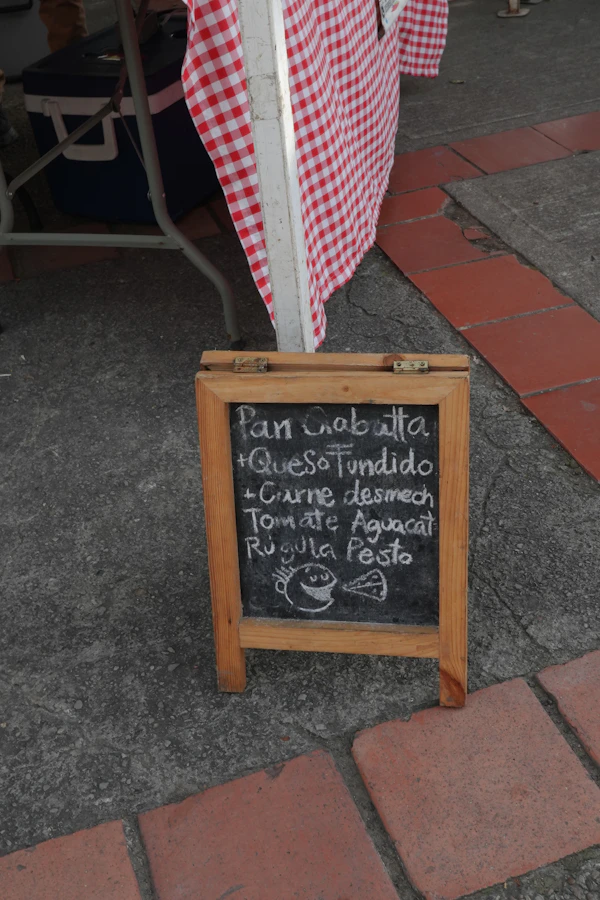 Pan Ciabatta
+Queso Fundido
+Carne desmech
Tomate Aguacat
Rúgula Pesto